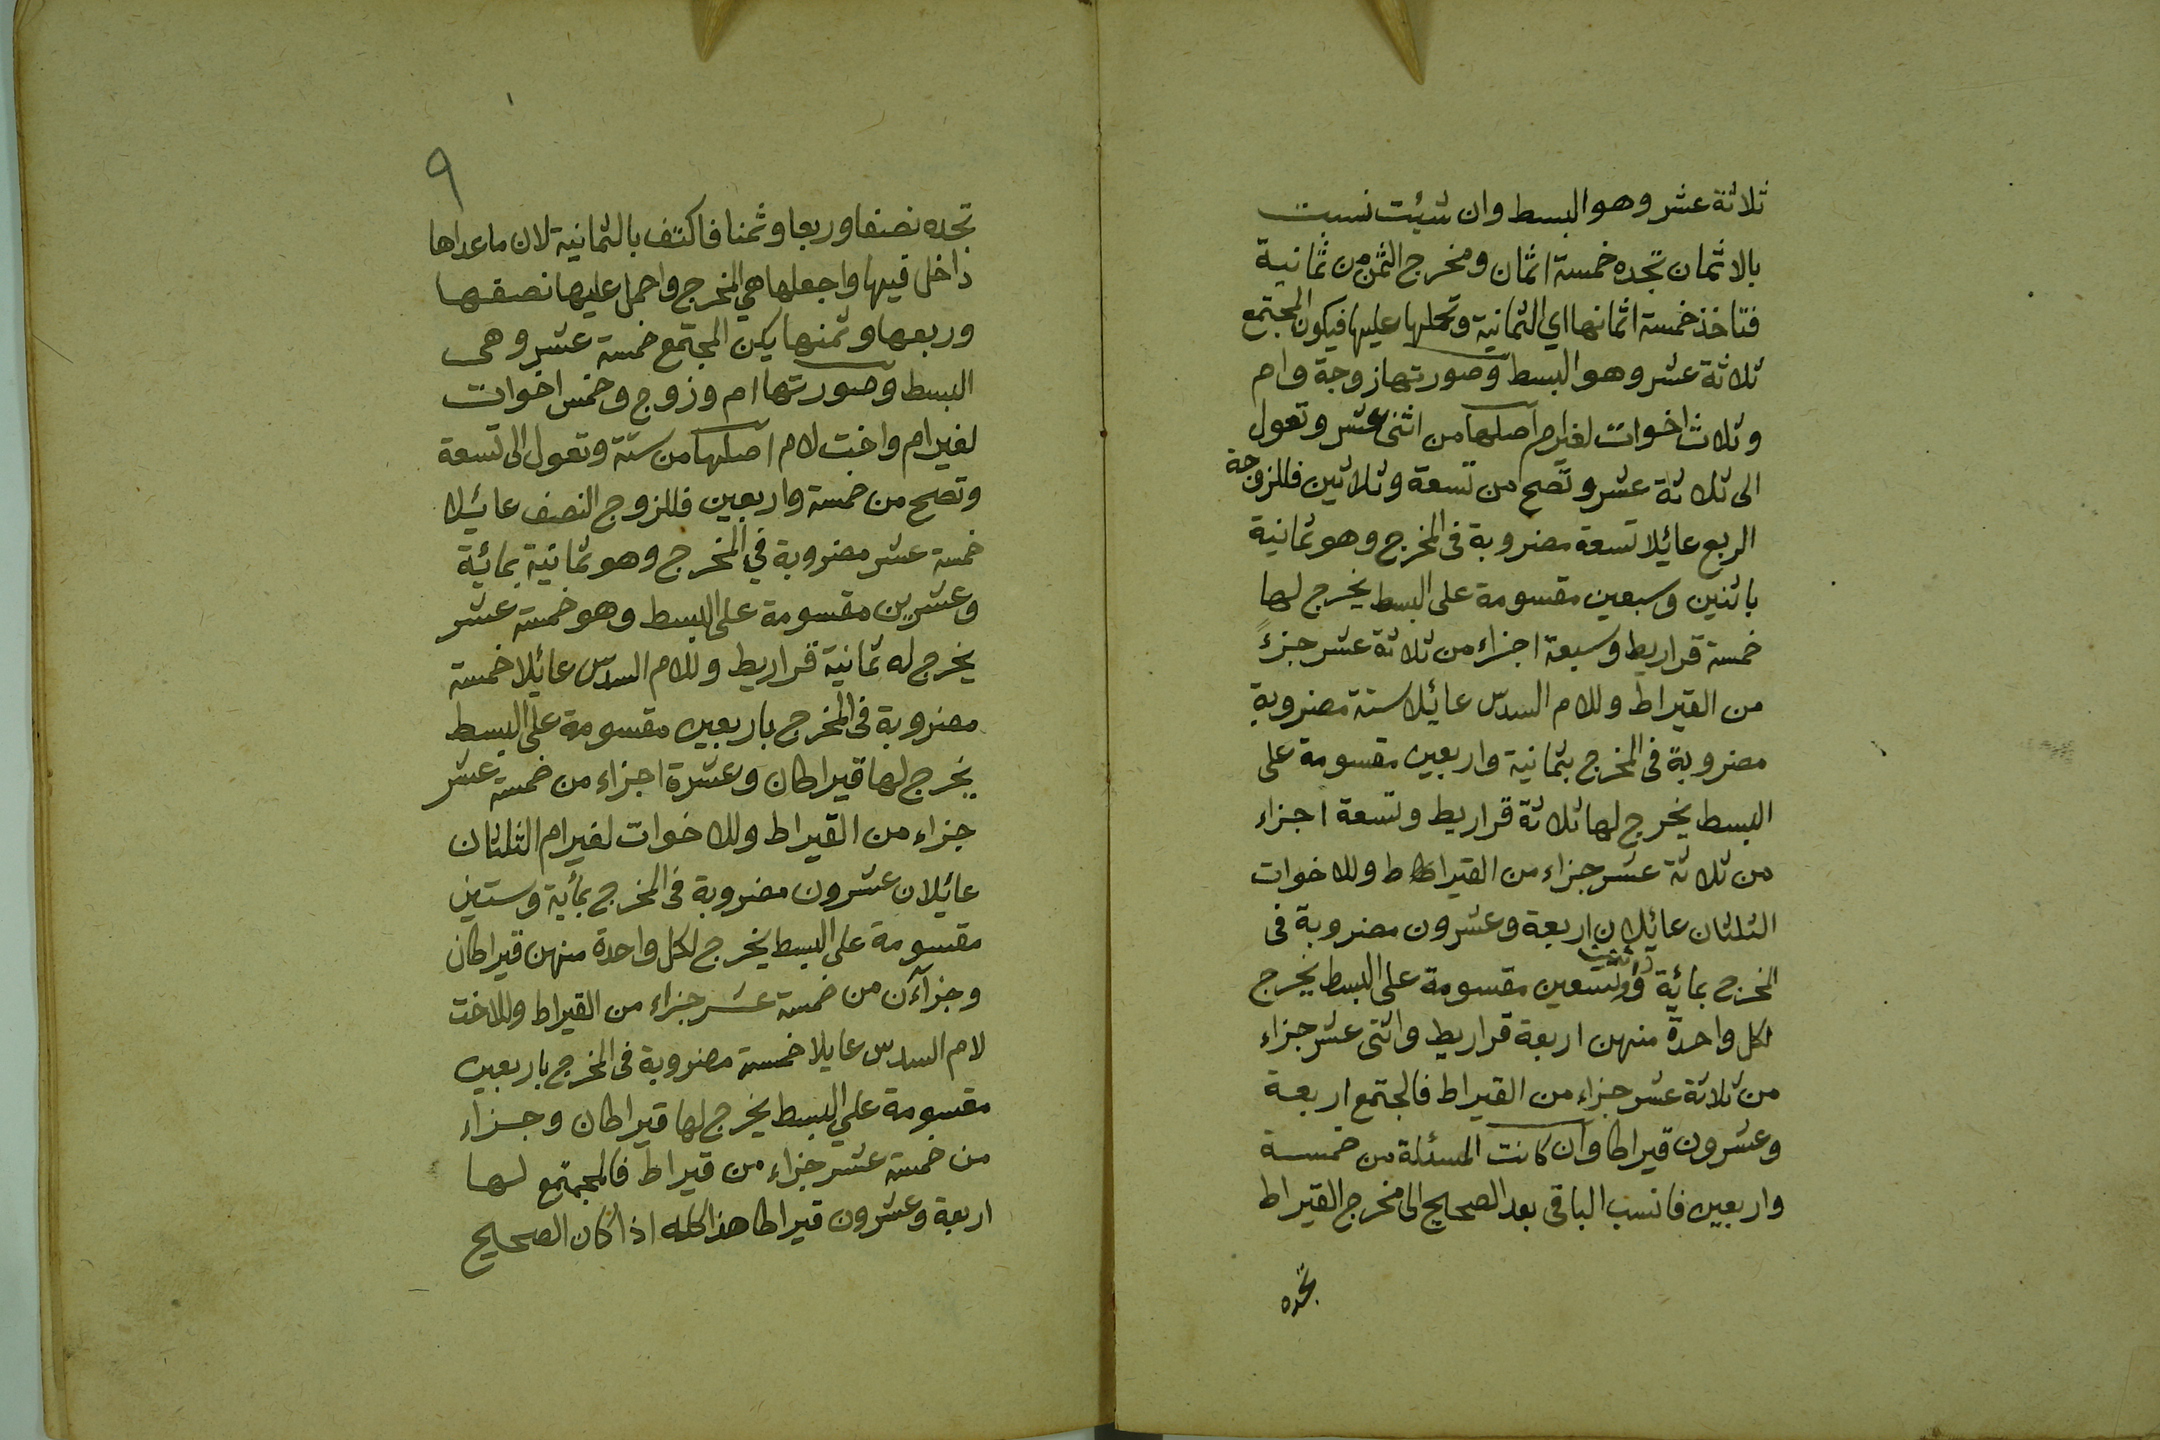 ثلاثة عشر وهو البسط وان شيئت نسبت
بالاثمان تجده خمسة اثمان ومخرج الثمن من ثمانية
فتاخذ خمسة اثمانها اي الثمانية وتحملها عليها فيكون المجتمع
ثلاثة عشر وهو البسط وصورتها زوجة وام
وثلاث اخوات لغير ام اصلها من اثنى عشر وتعول
الى ثلاثة عشر وتصح من تسعة وثلاثين فللزوجة
الربع عائيلا تسعة مضروبة فى المخرج وهو ثمانية
باثنين وسبعين مقسومة على البسط يخرج لها
خمسة قراريط وسبعة اجزاء من ثلاثة عشر جزءً
من القيراط وللام السدس عائيلا ستة مضروبة
مضروبة فى المخرج بثمانية واربعين مقسومة على
البسط يخرج لها ثلاثة قراريط وتسعة اجزاء
من ثلاثة عشر جزاء من القيراط ط وللاخوات
الثلثان عائيلان اربعة وعشرون مضروبة فى
المخرج بمائية وتسعين مقسومة على البسط يخرج
لكل واحدة منهن اربعة قراريط واثنى عشر جزاء
من ثلاثة عشر جزاء من القيراط فالمجتمع اربعة
وعشرون قيراطا وان كانت المسئلة من خمسة
واربعين فانسب الباقى بعد الصحيح الى مخرج القيراط
تجده
٩
تجده نصفا وربعا وثمنا فاكتف بالثمانية لان ما عداها
داخل فيها واجعلها هي المخرج واحمل عليها نصفها
وربعها وثمنها يكن المجتمع خمسة عشر وهى
البسط وصورتها ام وزوج وخمس اخوات
لغير ام واخت لام اصلها من ستة وتعول الى تسعة
وتصح من خمسة واربعين فللزوج النصف عائيلا
خمسة عشر مضروبة في المخرج وهو ثمانية بمائية
وعشرين مقسومة على البسط وهو خمسة عشر
يخرج له ثمانية قراريط وللام السدس عائيلا خمسة
مضروبة فى المخرج باربعين مقسومة على البسط
يخرج لها قيراطان وعشرة اجزاء من خمسة عشر
جزاء من القيراط وللاخوات لغير ام الثلثان
عائيلان عشرون مضروبة فى المخرج بمأية وستين
مقسومة على البسط يخرج لكل واحدة منهن قيراطان
وجزآءن من خمسة عشر جزاء من القيراط وللاخت
لام السدس عايلا خمسة مضروبة فى المخرج باربعين
مقسومة علي البسط يخرج لها قيراطان وجزاء
من خمسة عشر جزاء من قيراط فالمجتمع لها
اربعة وعشرون قيراطا هذا كله اذا كان الصحيح